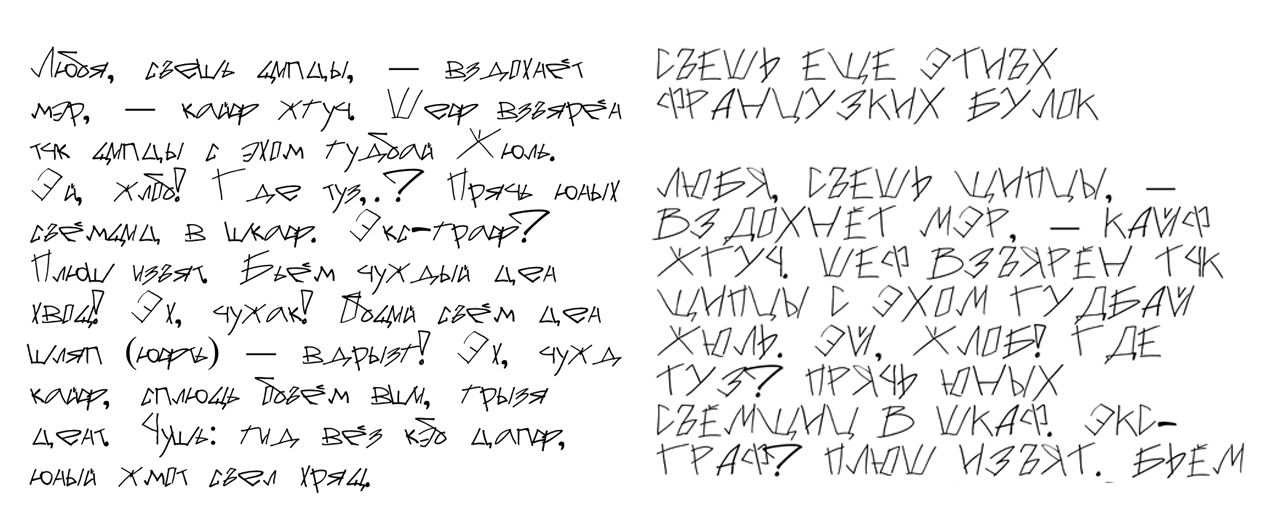 Любя, съешь щипцы, — вздохнёт
мэр, — кайф жгуч. Шеф взъярён
тчк щипцы с эхом гудбай Жюль.
Эй, жлоб! Где туз,.? Прячь юных
съёмщиц в шкаф. Экс-граф?
Плюш изъят. Бьём чуждый цен
хвощ! Эх, чужак! Общий съём цен
шляп (юфть) — вдрызг! Эх, чужд
кайф, сплющь объём вши, грызя
цент. Чушь: гид вёз кэб цапф,
юный жмот съел хрящ.
СЪЕШЬ ЕЩЕ ЭТИЪХ
ФРАНЦУЗКИХ БУЛОК
ЛЮБЯ, СЪЕШЬ ЩИПЦЫ, —
ВЗДОХНЁТ МЭР, — КАЙФ
ЖГУЧ. ШЕФ ВЗЪЯРЁН ТЧК
ЩИПЦЫ С ЭХОМ ГУДБАЙ
ЖЮЛЬ. ЭЙ, ЖЛОБ! ГДЕ
ТУЗ? ПРЯЧЬ ЮНЫХ
СЪЁМЩИЦ В ШКАФ. ЭКС-
ГРАФ? ПЛЮШ ИЗЪЯТ. БЬЁМ